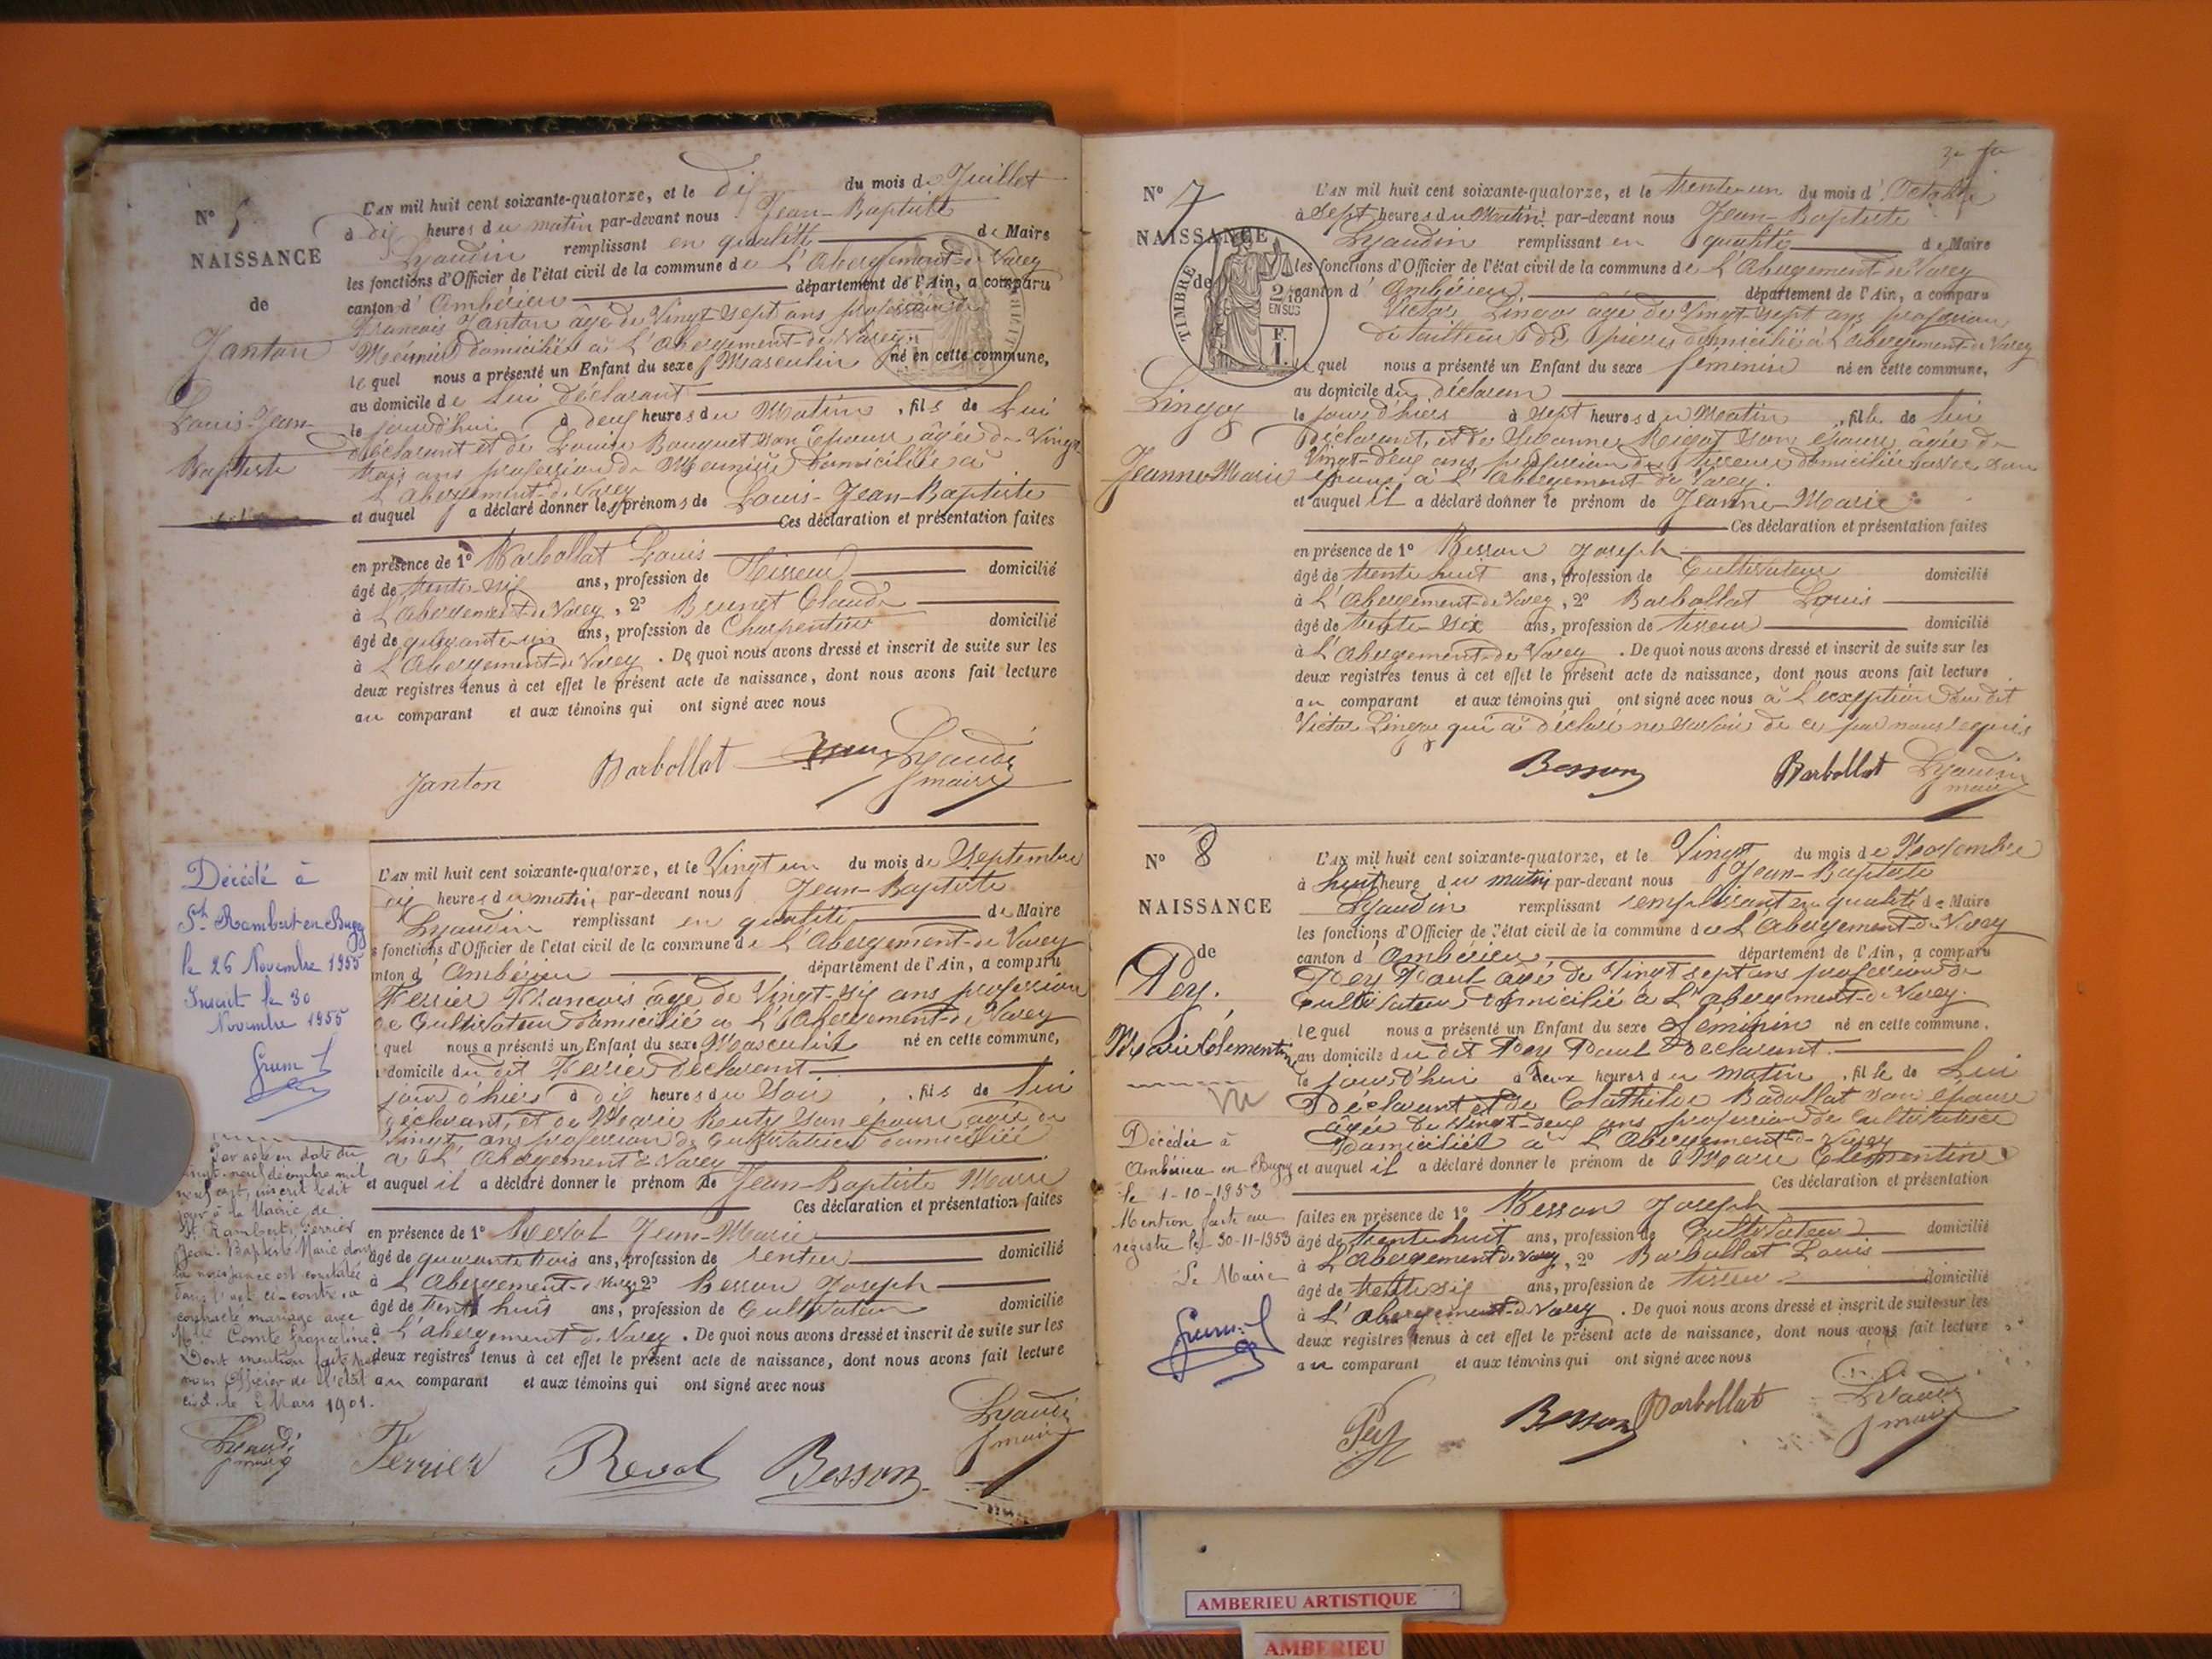 N° 5
NAISSANCE
de
Janton
Louis-Jean-
Baptiste
L'AN mil huit cent soixante-quatorze, et le dix du mois de Juillet
à dix heures du matin par-devant nous Jean-Baptiste
Lyaudin remplissant en qualité de Maire
les fonctions d'Officier de l'état civil de la commune de L'Abergement-de-Varey
canton d'Ambérieu département de l'Ain, a comparu
François Janton âgé de Vingt-sept ans profession de
Meunier domicilié à L'Abergement-de-Varey
lequel nous a présenté un Enfant du sexe Masculin né en cette commune,
au domicile de lui déclarant
le jourd'hui à deux heures du Matin, fils de Lui
déclarant et de Louise Bouquet son épouse âgée de Vingt
trois ans profession de Meunière domiciliée à
L'Abergement-de-Varey
et auquel il a déclaré donner les prénoms de Louis-Jean-Baptiste
Ces déclaration et présentation faites
en présence de 1° Barbollat Louis
âgé de trente-six ans, profession de Tisseur domicilié
à L'Abergement-de-Varey, 2° Brunet Claude
âgé de quarante-un ans, profession de Charpentier domicilié
à L'Abergement-de-Varey. De quoi nous avons dressé et inscrit de suite sur les
deux registres tenus à cet effet le présent acte de naissance, dont nous avons fait lecture
au comparant et aux témoins qui ont signé avec nous
Janton Barbollat Lyaudin
maire
Décédé à
St Rambert en Bugey
le 26 Novembre 1955
Inscrit le 30
Novembre 1955
L'AN mil huit cent soixante-quatorze, et le Vingt un du mois de Septembre
dix heures du matin par-devant nous Jean-Baptiste
Lyaudin remplissant en qualité de Maire
s fonctions d'Officier de l'état civil de la commune de L'Abergement-de-Varey
nton d'Ambérieu département de l'Ain, a comparu
Ferrier François âgé de Vingt-six ans profession
de Cultivateur domicilié à L'Abergement-de-Varey
quel nous a présenté un Enfant du sexe Masculin né en cette commune,
domicile du dit Ferrier déclarant
jour d'hier à dix heures du Soir, fils de lui
déclarant, et de Marie Reuty son épouse agée de
Vingt ans profession de Cultivatrice domiciliée
à L'Abergement de Varey
et auquel il a déclaré donner le prénom de Jean-Baptiste Marie
Ces déclaration et présentation faites
en présence de 1° Revol Jean-Marie
âgé de quarante trois ans, profession de rentier domicilié
à L'Abergement-de-Varey 2° Besson Joseph
âgé de trente huit ans, profession de Cultivateur domicilié
à L'abergement de Varey. De quoi nous avons dressé et inscrit de suite sur les
deux registres tenus à cet effet le présent acte de naissance, dont nous avons fait lecture
au comparant et aux témoins qui ont signé avec nous
Par acte en date du
vingt-neuf décembre mil
neuf cent, inscrit ledit
jour à la Mairie de
St Rambert, Ferrier
Jean-Baptiste Marie dont
la naissance est constatée
dans l'acte ci-contre a
contracté mariage avec
Mlle Comte Franceline.
Dont mention faite par
nous Officier de l'état
civil le 2 Mars 1901.
Lyaudin
maire
Ferrier Revol Besson Lyaudin
maire
N° 7
NAISSANCE
de
TIMBRE
2/10
EN SUS
F.
1.
Lingoz
Jeanne-Marie
L'AN mil huit cent soixante-quatorze, et le trente-un du mois d'Octobre
à Sept heures du Matin par-devant nous Jean-Baptiste
Lyaudin remplissant en qualité de Maire
les fonctions d'Officier de l'état civil de la commune de L'Abergement-de-Varey
canton d'Ambérieu, département de l'Ain, a comparu
Victor Lingoz âgé de Vingt-sept ans profession
de tailleur de pierres domicilié à L'abergement-de-Varey
quel nous a présenté un Enfant du sexe féminin né en cette commune,
au domicile du déclarant
le jour d'hier à Sept heures du Matin, fille de lui
Déclarant, et de Suzanne Rigot son épouse âgée de
Vingt-deux ans profession de tisseuse domiciliée avec son
époux à L'Abergement de Varey.
et auquel il a déclaré donner le prénom de Jeanne-Marie
Ces déclaration et présentation faites
en présence de 1° Besson Joseph
âgé de trente huit ans, profession de Cultivateur domicilié
à L'Abergement-de-Varey, 2° Barbollat Louis
âgé de trente-six ans, profession de tisseur domicilié
à L'Abergement-de-Varey. De quoi nous avons dressé et inscrit de suite sur les
deux registres tenus à cet effet le présent acte de naissance, dont nous avons fait lecture
au comparant et aux témoins qui ont signé avec nous à L'exception du dit
Victor Lingoz qui a déclaré ne savoir de ce par nous requis
Besson Barbollat Lyaudin
maire
N° 8
NAISSANCE
de
Pey.
Marie Clémentine
Vu
Décédée à
Ambérieu en Bugey
le 1-10-1953
Mention faite au
registre le 30-11-1953
Le Maire
L'AN mil huit cent soixante-quatorze, et le Vingt du mois de Novembre
à huit heure du matin par-devant nous Jean-Baptiste
Lyaudin remplissant remplissant en qualité de Maire
les fonctions d'Officier de l'état civil de la commune de L'Abergement-de-Varey
canton d'Ambérieu, département de l'Ain, a comparu
Pey Paul agé de Vingt sept ans profession de
Cultivateur domicilié à L'abergement-de-Varey.
lequel nous a présenté un Enfant du sexe Féminin né en cette commune,
au domicile du dit Pey Paul Déclarant
le jourd'hui à deux heures du matin, fille de Lui
Déclarant et de Colathilde Badollat son épouse
âgée de Vingt-deux ans profession de Cultivatrice
domiciliée à L'Abergement-de-Varey
et auquel il a déclaré donner le prénom de Marie Clémentine
Ces déclaration et présentation
faites en présence de 1° Besson Joseph
âgé de trente huit ans, profession de Cultivateur domicilié
à L'Abergement de Varey, 2° Barbollat Louis
âgé de trente six ans, profession de tisseur domicilié
à L'Abergement-de-Varey. De quoi nous avons dressé et inscrit de suite sur les
deux registres tenus à cet effet le présent acte de naissance, dont nous avons fait lecture
au comparant et aux témoins qui ont signé avec nous
Pey Besson Barbollat Lyaudin
maire
AMBERIEU ARTISTIQUE
AMBERIEU